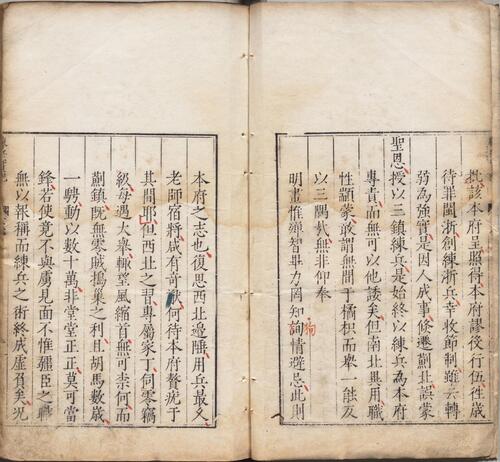 批該本府呈照得本府謬從行伍往歲
待罪閩浙創練浙兵幸收節制雖云轉
弱為強實是因人成事倏遷薊北誤蒙
聖恩授以三鎮練兵是始終以練兵為本府
專責而無可以他諉矣但南北異用職
性顓蒙敢謂無間于橘枳而舉一能反
以三隅貳無非仰奉
明畫惟殫智畢力罔知詢情避忌此則
徇
本府之志也復思西北邊陲用兵最久
老師宿將咸有奇猷何待本府贅疣于
其間耶但西北之習專屬家丁伺零竊
級每遇大舉輒望風縮首無可柰何而
薊鎮既無零賊搗巢之利且胡馬數歲
一騁動以數十萬非堂堂正正莫可當
鋒若使竟不與虜見面不惟疆臣之職
無以報稱而練兵之術終成虛負矣况